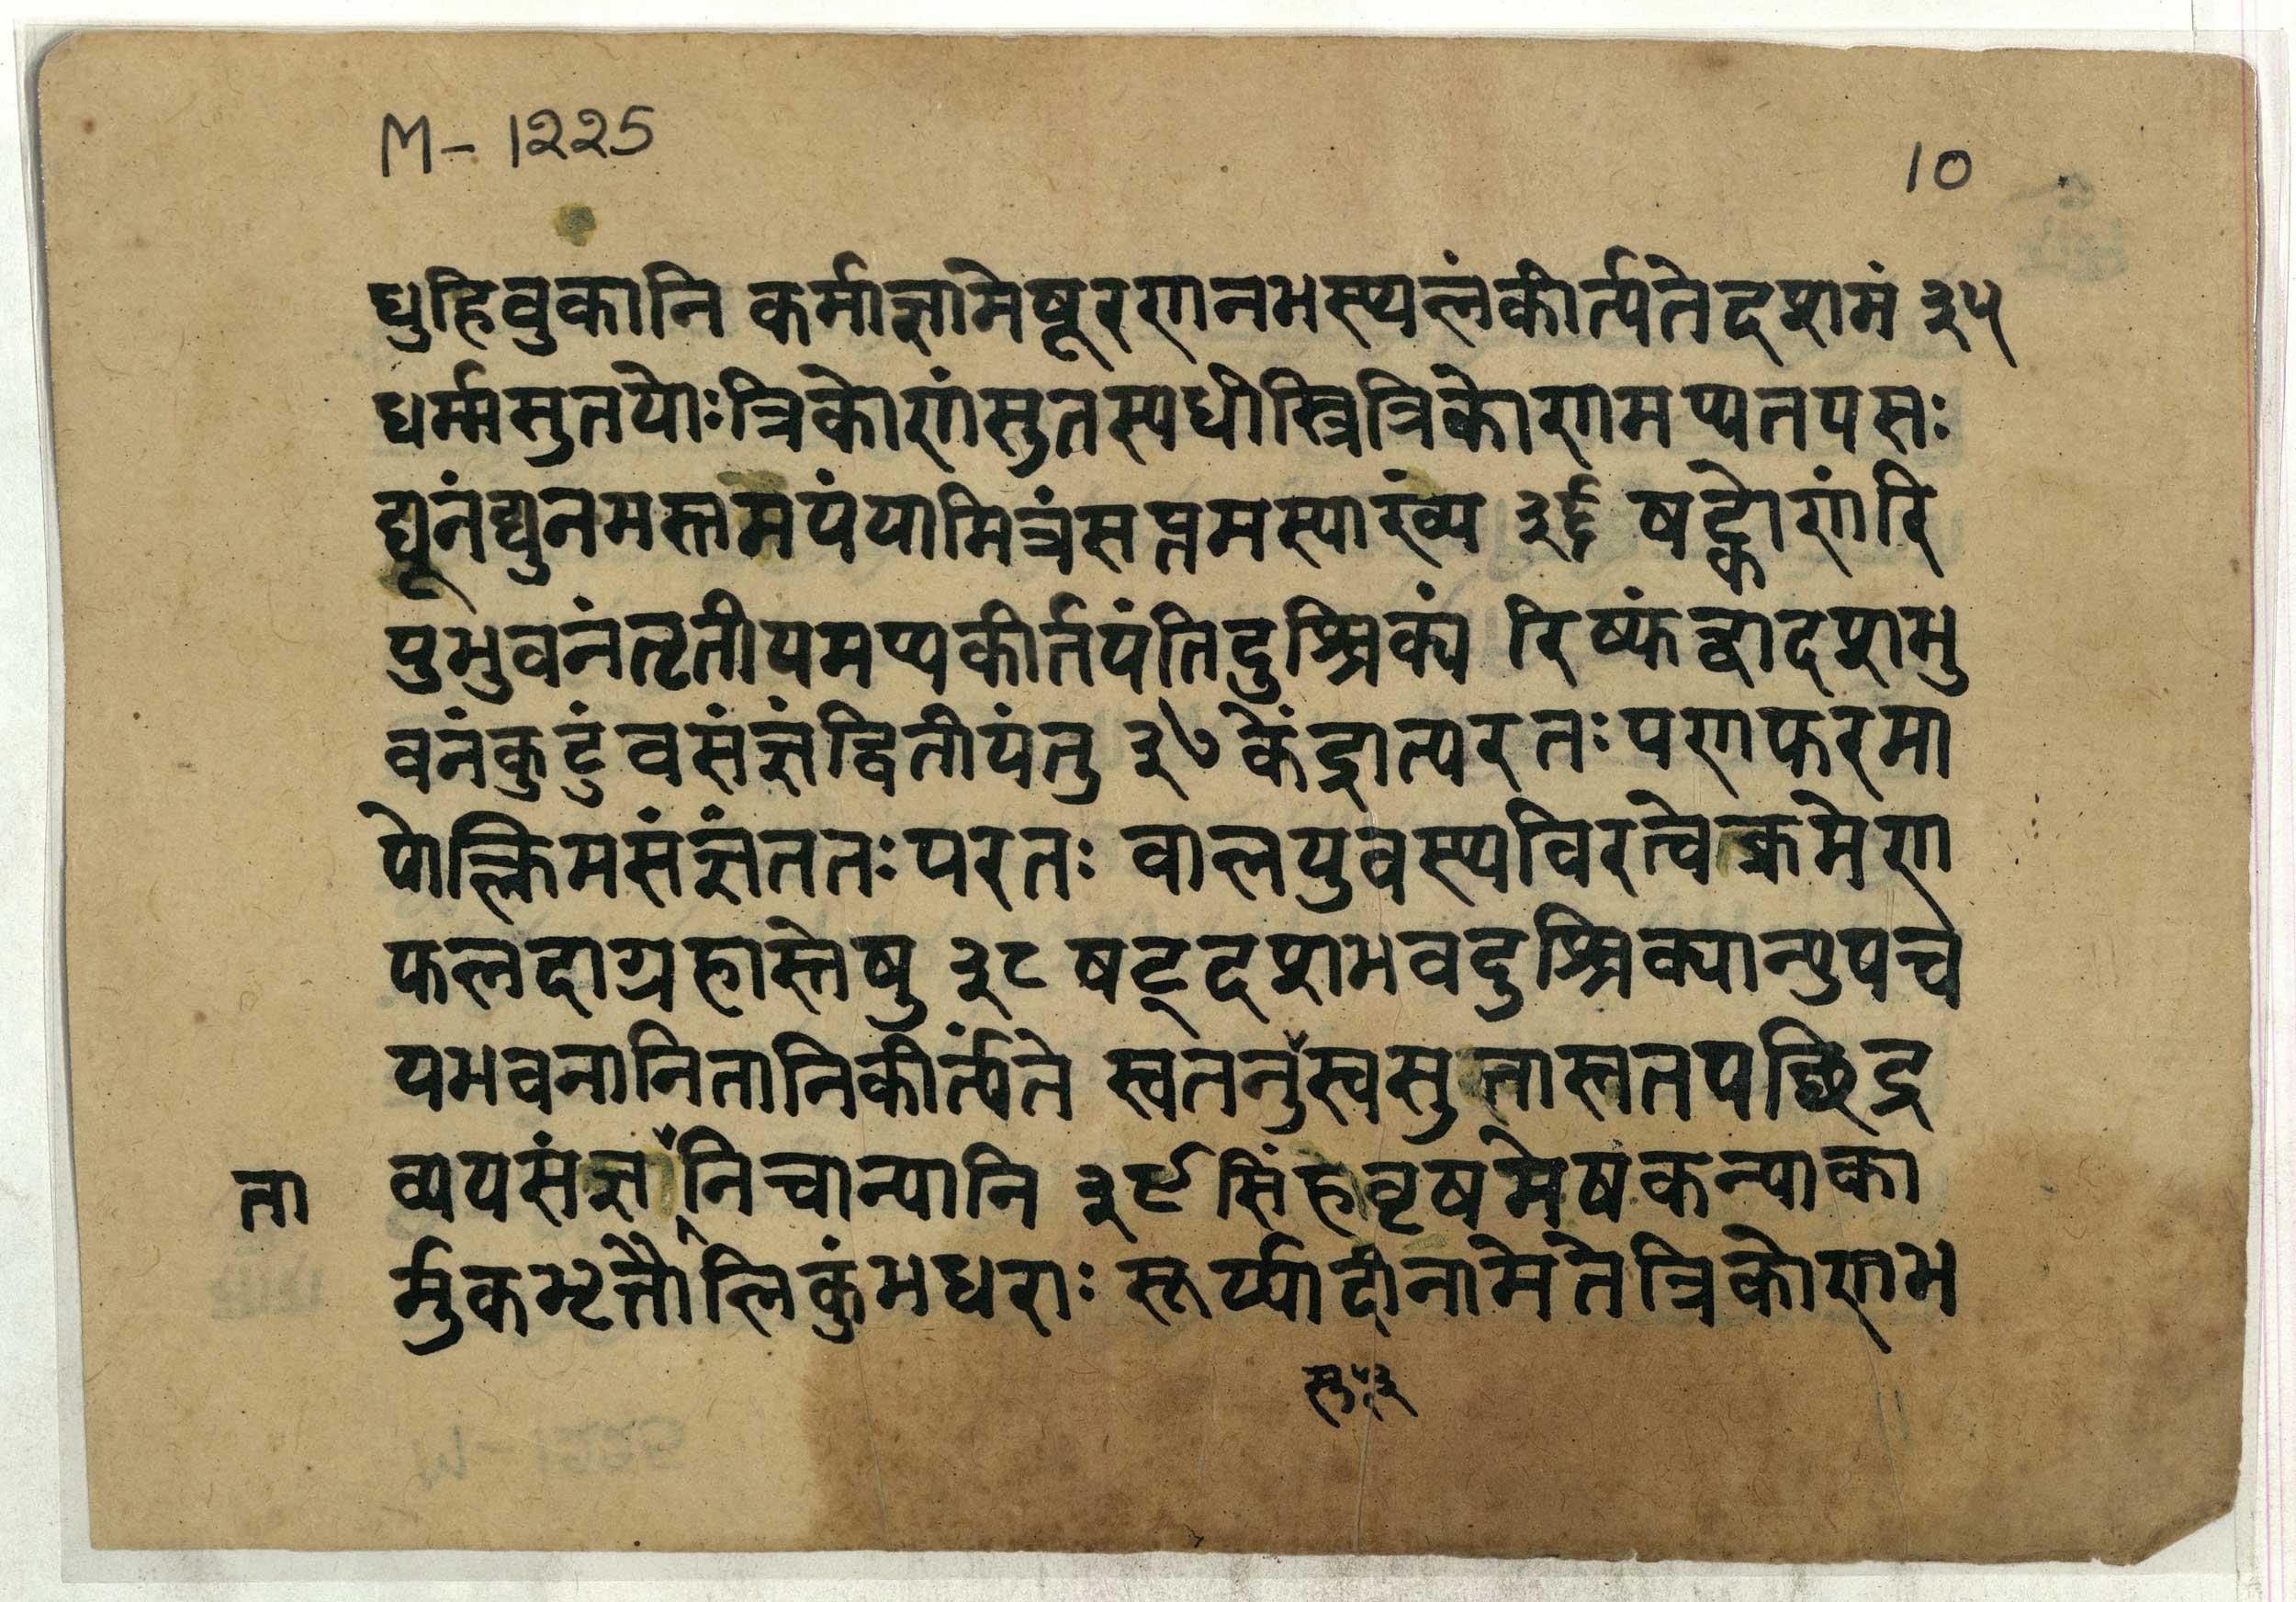 M-1225
10
धुहिवुकानि कर्माज्ञामेषूरणनभस्थलंकीर्त्यतेदशमं ३५
धर्म्मसुतयोःत्रिकोणंसुतस्यधीस्त्रित्रिकोणमप्यतपसः
द्यूनंद्युनमस्तमयंयामित्रंसप्तमस्याख्य ३६ षट्कोणंरि
पुभुवनंतृतीयमप्यकीर्तयंतिदुश्चिक्यं रिष्फंद्वादशमभु
वनंकुटुंवसंज्ञंद्वितीयंतु ३७ केंद्रात्परतःपणफरमा
पोक्लिमसंज्ञंततःपरतः वालयुवस्थविरत्वेक्रमेण
फलदाग्रहास्तेषु ३८ षट्दशभवदुश्चिक्यान्युपच
यभवनानितानिकीर्त्यंते स्वतनुँस्वसुतास्ततपछिद्र
ता व्ययसंज्ञानिचान्यानि ३९ सिंहवृषमेषकन्याका
र्मुकभृत्तौलिकुंभधराः सूर्य्यादीनामेतेत्रिकोणभ